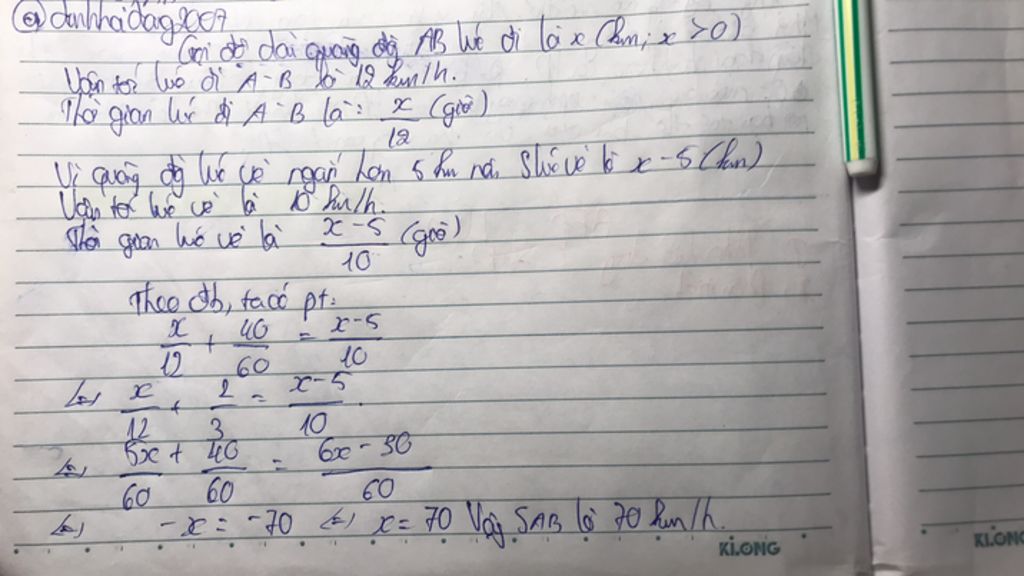 @danhhaidag2007
Gọi độ dài quãng đg AB lúc đi là x (km; x > 0)
Vận tốc lúc đi A-B là 12 km/h.
Thời gian lúc đi A-B là: x/12 (giờ)
Vì quãng đg lúc về ngắn hơn 5 km nên S lúc về là x-5 (km)
Vận tốc lúc về là 10 km/h.
Thời gian lúc về là x-5/10 (giờ)
Theo đb, ta có pt:
x/12 + 40/60 = x-5/10
<=> x/12 + 2/3 = x-5/10.
<=> 5x/60 + 40/60 = 6x-30/60
<=> -x = -70 <=> x = 70 Vậy SAB là 70 km/h.
KLONG
KLONG